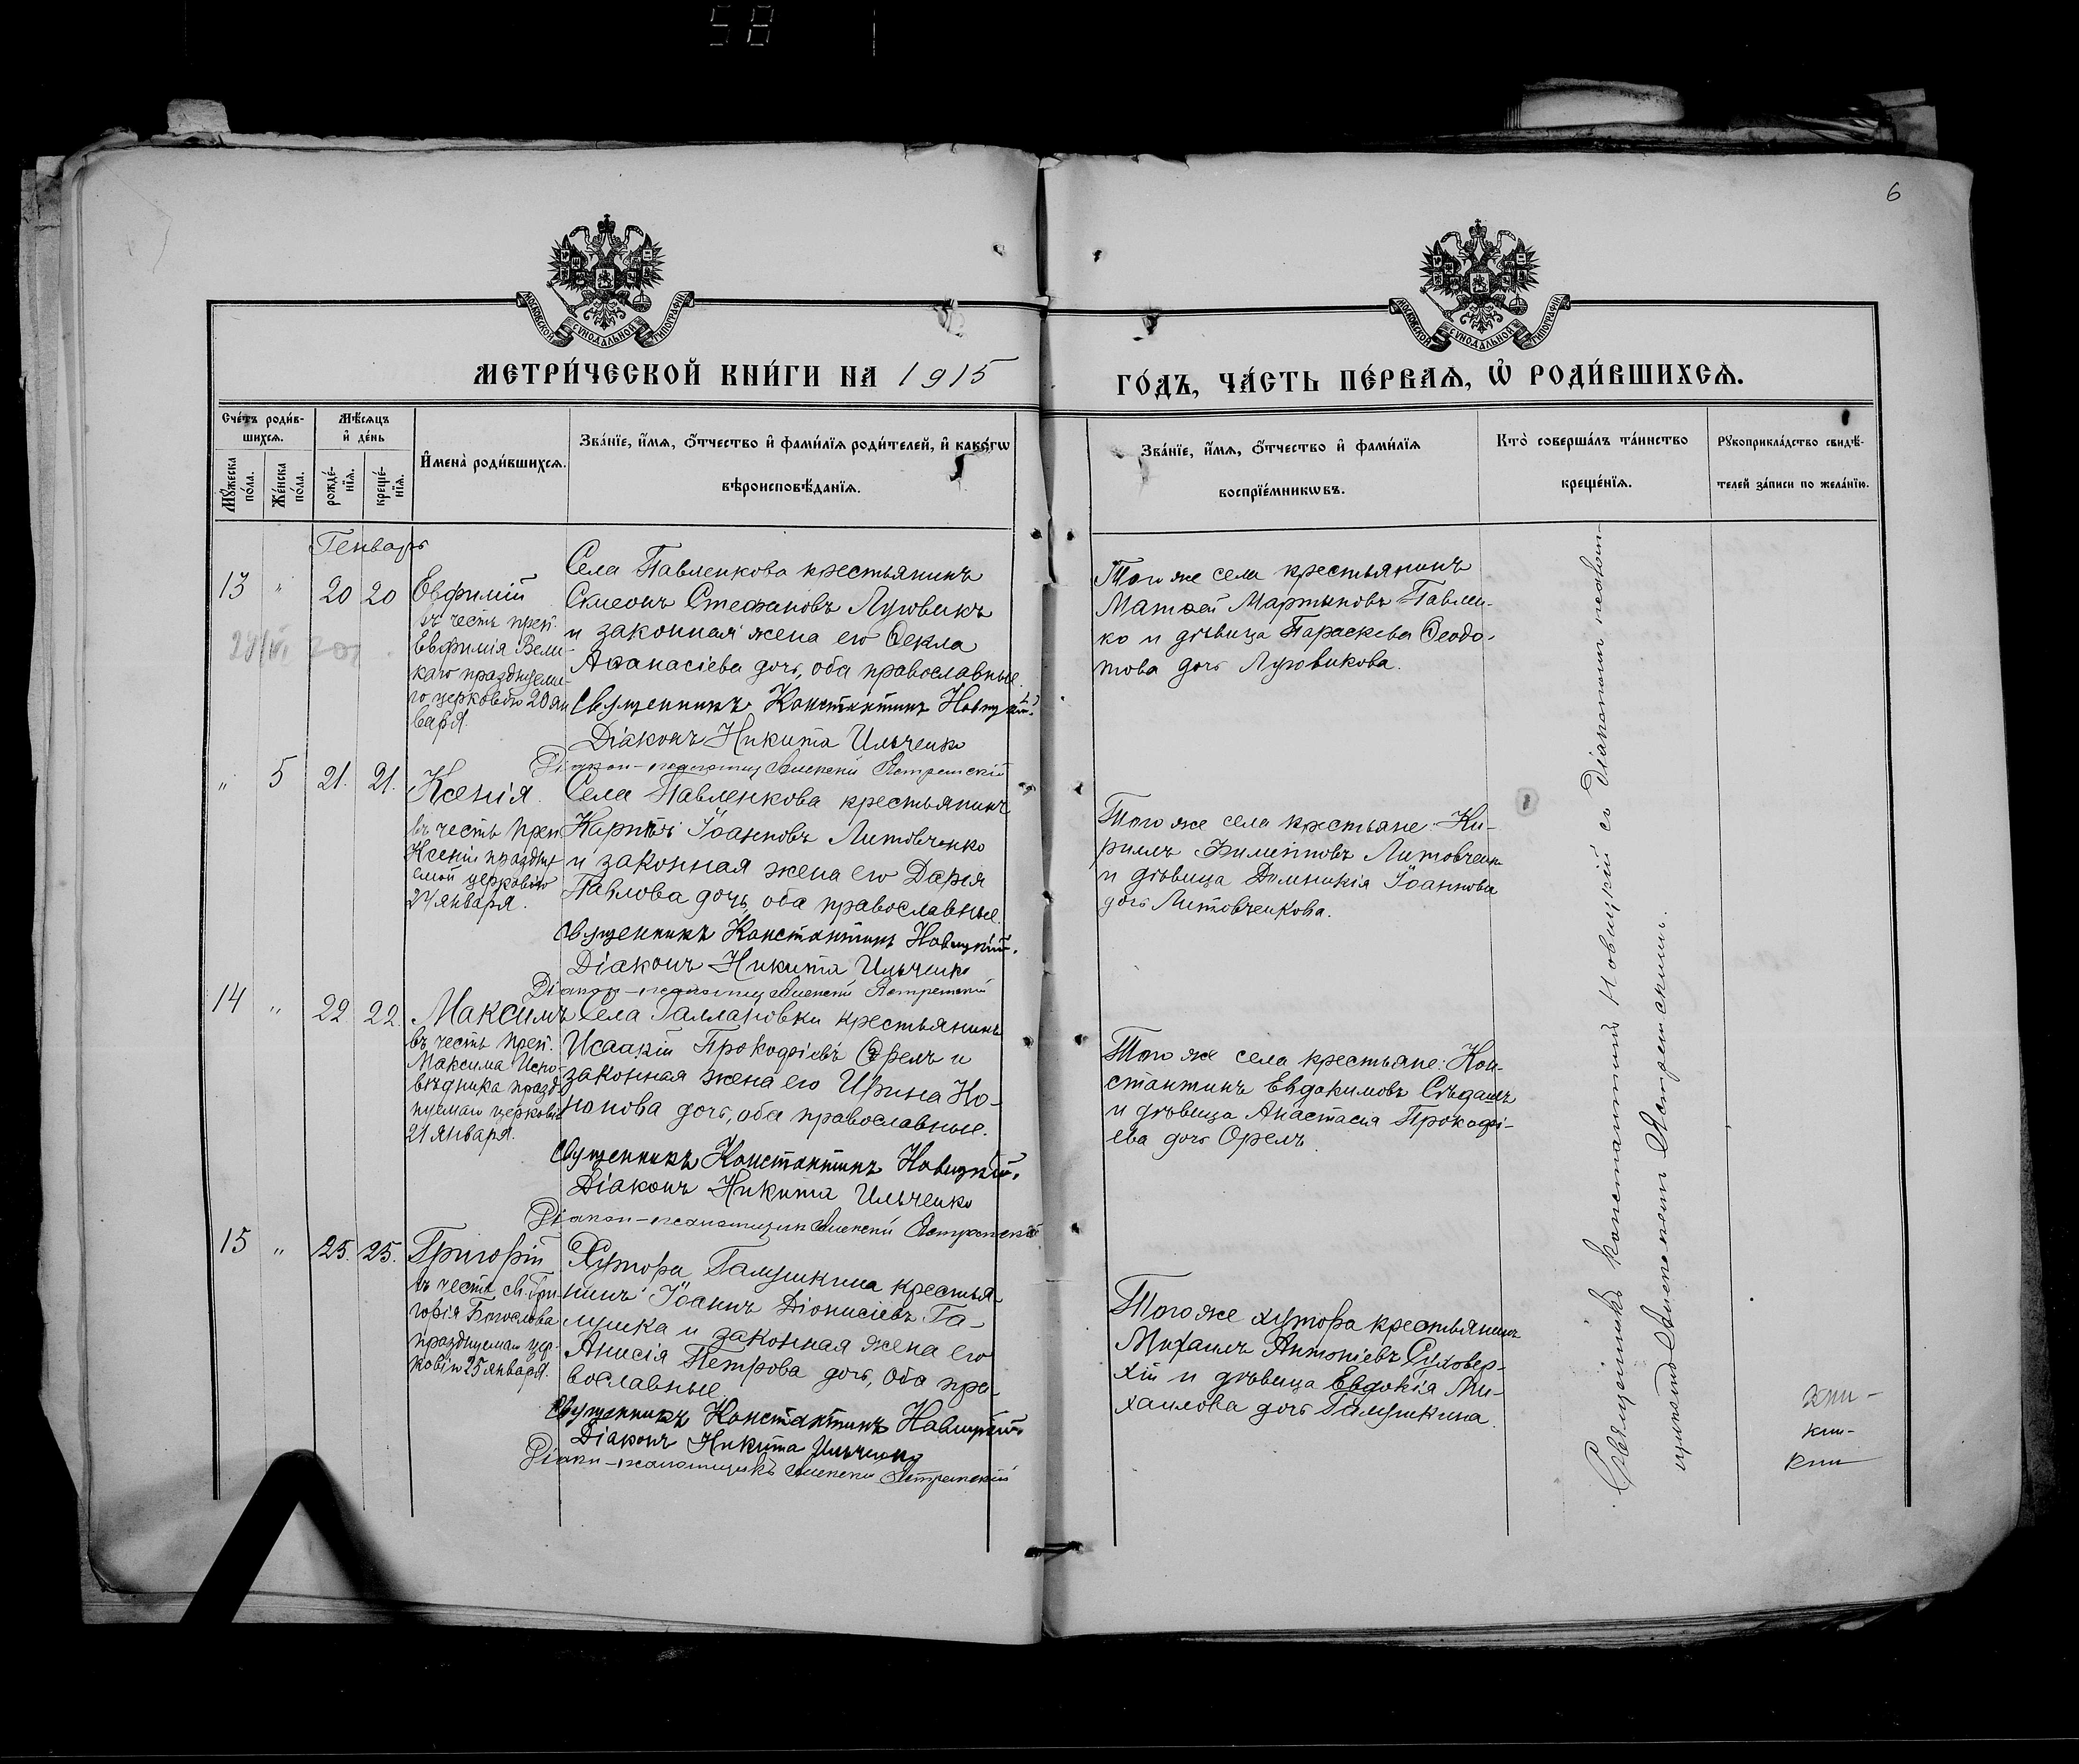 58
6
МОСКОВСКОЙ СѴНОДАЛЬНОЙ ТИПОГРАФІИ
МОСКОВСКОЙ СѴНОДАЛЬНОЙ ТИПОГРАФІИ
МЕТРИ́ЧЕСКОЙ КНИ́ГИ НА 1915
ГО́ДЪ, ЧА́СТЬ ПЕ́РВАѦ, Ѡ҆ РОДИ́ВШИХСѦ.
Сче́тъ роди́в-
шихсѧ.
Мѣ́сѧцъ
и҆ де́нь
Мꙋ́жеска
по́ла.
Же́нска
по́ла.
рожде́-
нїѧ.
креще́-
нїѧ.
И҆мена̀ роди́вшихсѧ.
Зва́нїе, и҆́мѧ, ѻ҆́тчество и҆ фами́лїѧ роди́телей, и҆ какѡ́гѡ
вѣроисповѣ́данїѧ.
Зва́нїе, и҆́мѧ, ѻ҆́тчество и҆ фами́лїѧ
воспрїе́мникѡвъ.
Кто̀ соверша́лъ та́инство
креще́нїѧ.
Рꙋкоприкла́дство свидѣ́-
телей за́писи по жела́нїю.
Генварь
13 " 20 20
Евфимій
въ честь преп.
Евфимія Вели-
каго празднуема-
го церковію 20 ян
варя.
Села Павленкова крестьянинъ
Симеонъ Стефановъ Луговикъ
и законная жена его Ѳекла
Аѳанасіева дочь, оба православные.
Священникъ Константинъ Новицкій.
Діаконъ Никита Ильченко
Діакон-псаломщ Алексій Ястремскій
Того же села крестьянинъ
Матѳей Мартыновъ Павлен-
ко и дѣвица Параскева Ѳеодо-
това дочь Луговикова.
" 5 21. 21.
Ксенія.
въ честь преп
Ксеніи праздну-
емой церковію
24 января.
Села Павленкова крестьянинъ
Карпъ Іоанновъ Литовченко
и законная жена его Дарія
Павлова дочь, оба православные.
Священникъ Константинъ Новицкій.
Діаконъ Никита Ильченко
Діакон-псаломщ Алексій Ястремскій
Того же села крестьяне: Ки-
риллъ Филипповъ Литовченко
и дѣвица Домникія Іоаннова
дочь Литовченкова.
14 " 22 22.
Максимъ
въ честь преп.
Максима Испо-
вѣдника празд-
нуемаго церковію
21 января.
Села Галлановки крестьянинъ
Исаакій Прокофіевъ Орелъ и
законная жена его Ирина Ко-
нонова дочь, оба православные.
Священникъ Константинъ Новицкій.
Діаконъ Никита Ильченко
Діакон-псаломщик Алексій Ястремскій
Того же села крестьяне: Кон-
стантинъ Евдокимовъ Сѣдашъ
и дѣвица Анастасія Прокофі-
ева дочь Орелъ
15 " 25. 25.
Григорій
въ честь св. Гри-
горія Богослова
празднуемаго цер-
ковію 25 января.
Хутора Галушкина крестья-
нинъ Іоаннъ Діонисіевъ Га-
лушка и законная жена его
Анисія Петрова дочь, оба пра-
вославные.
Священникъ Константинъ Новицкій
Діаконъ Никита Ильченко
Діакон-псаломщикъ Алексій Ястремскій
Того же хутора крестьянинъ
Михаилъ Антоніевъ Суховер-
хій и дѣвица Евдокія Ми-
хаилова дочь Галушкина.
Священникъ Константинъ Новицкій съ Діакономъ псалом-
щикомъ Алексѣемъ Ястремскимъ.